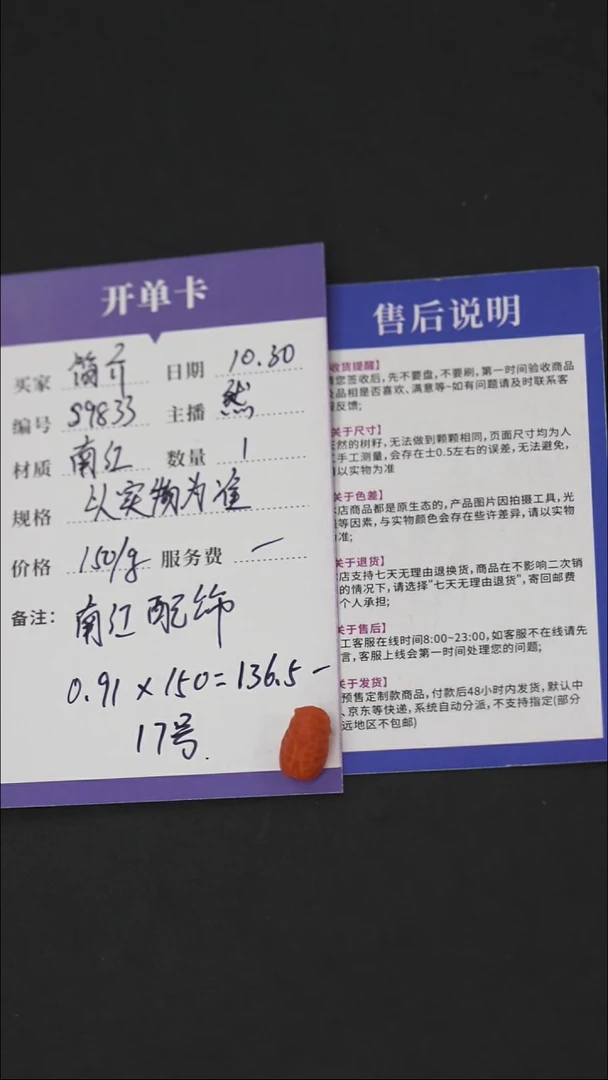 开单卡
买家 简介 日期 10.30
编号 S9833 主播 然
材质 南红 数量 1
规格 以实物为准
价格 150/g 服务费 一
备注: 南红配饰
0.91×150=136.5一
17号.
售后说明
收货提醒】
您签收后, 先不要盘, 不要刷, 第一时间验收商品
品相是否喜欢、满意等~如有问题请及时联系客
反馈;
关于尺寸】
然的树籽, 无法做到颗颗相同, 页面尺寸均为人
手工测量, 会存在士0.5左右的误差, 无法避免,
以实物为准
关于色差】
店商品都是原生态的, 产品图片因拍摄工具, 光
等因素, 与实物颜色会存在些许差异, 请以实物
准;
关于退货】
店支持七天无理由退换货, 商品在不影响二次销
的情况下, 请选择"七天无理由退货", 寄回邮费
个人承担;
关于售后】
工客服在线时间8:00~23:00, 如客服不在线请先
言, 客服上线会第一时间处理您的问题;
关于发货】
预售定制款商品, 付款后48小时内发货, 默认中
、京东等快递, 系统自动分派, 不支持指定(部分
远地区不包邮)